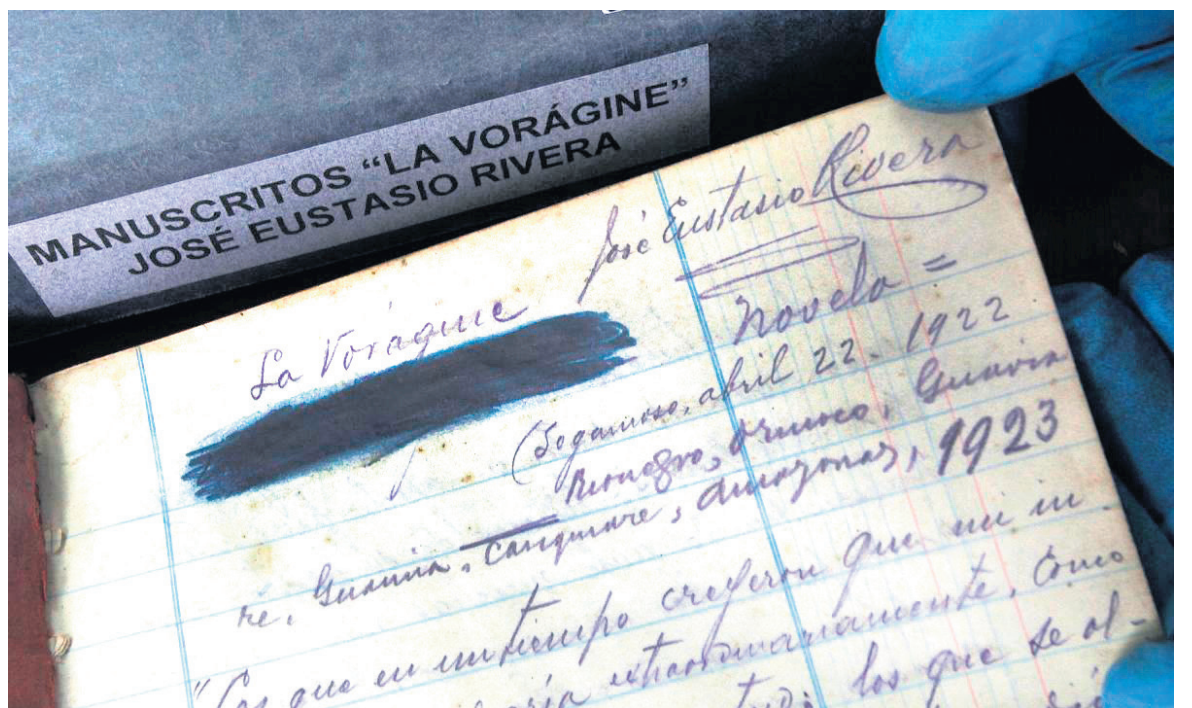 MANUSCRITOS “LA VORÁGINE”
JOSÉ EUSTASIO RIVERA
José Eustasio Rivera
La Vorágine
novela =
(Sogamoso, abril 22 - 1922
Rionegro, Orinoco, Guavia
re, Guainía, Casiquiare, Amazonas, 1923
"Los que en un tiempo creyeron que mi in
extraordinariamente, como
los que se ol-